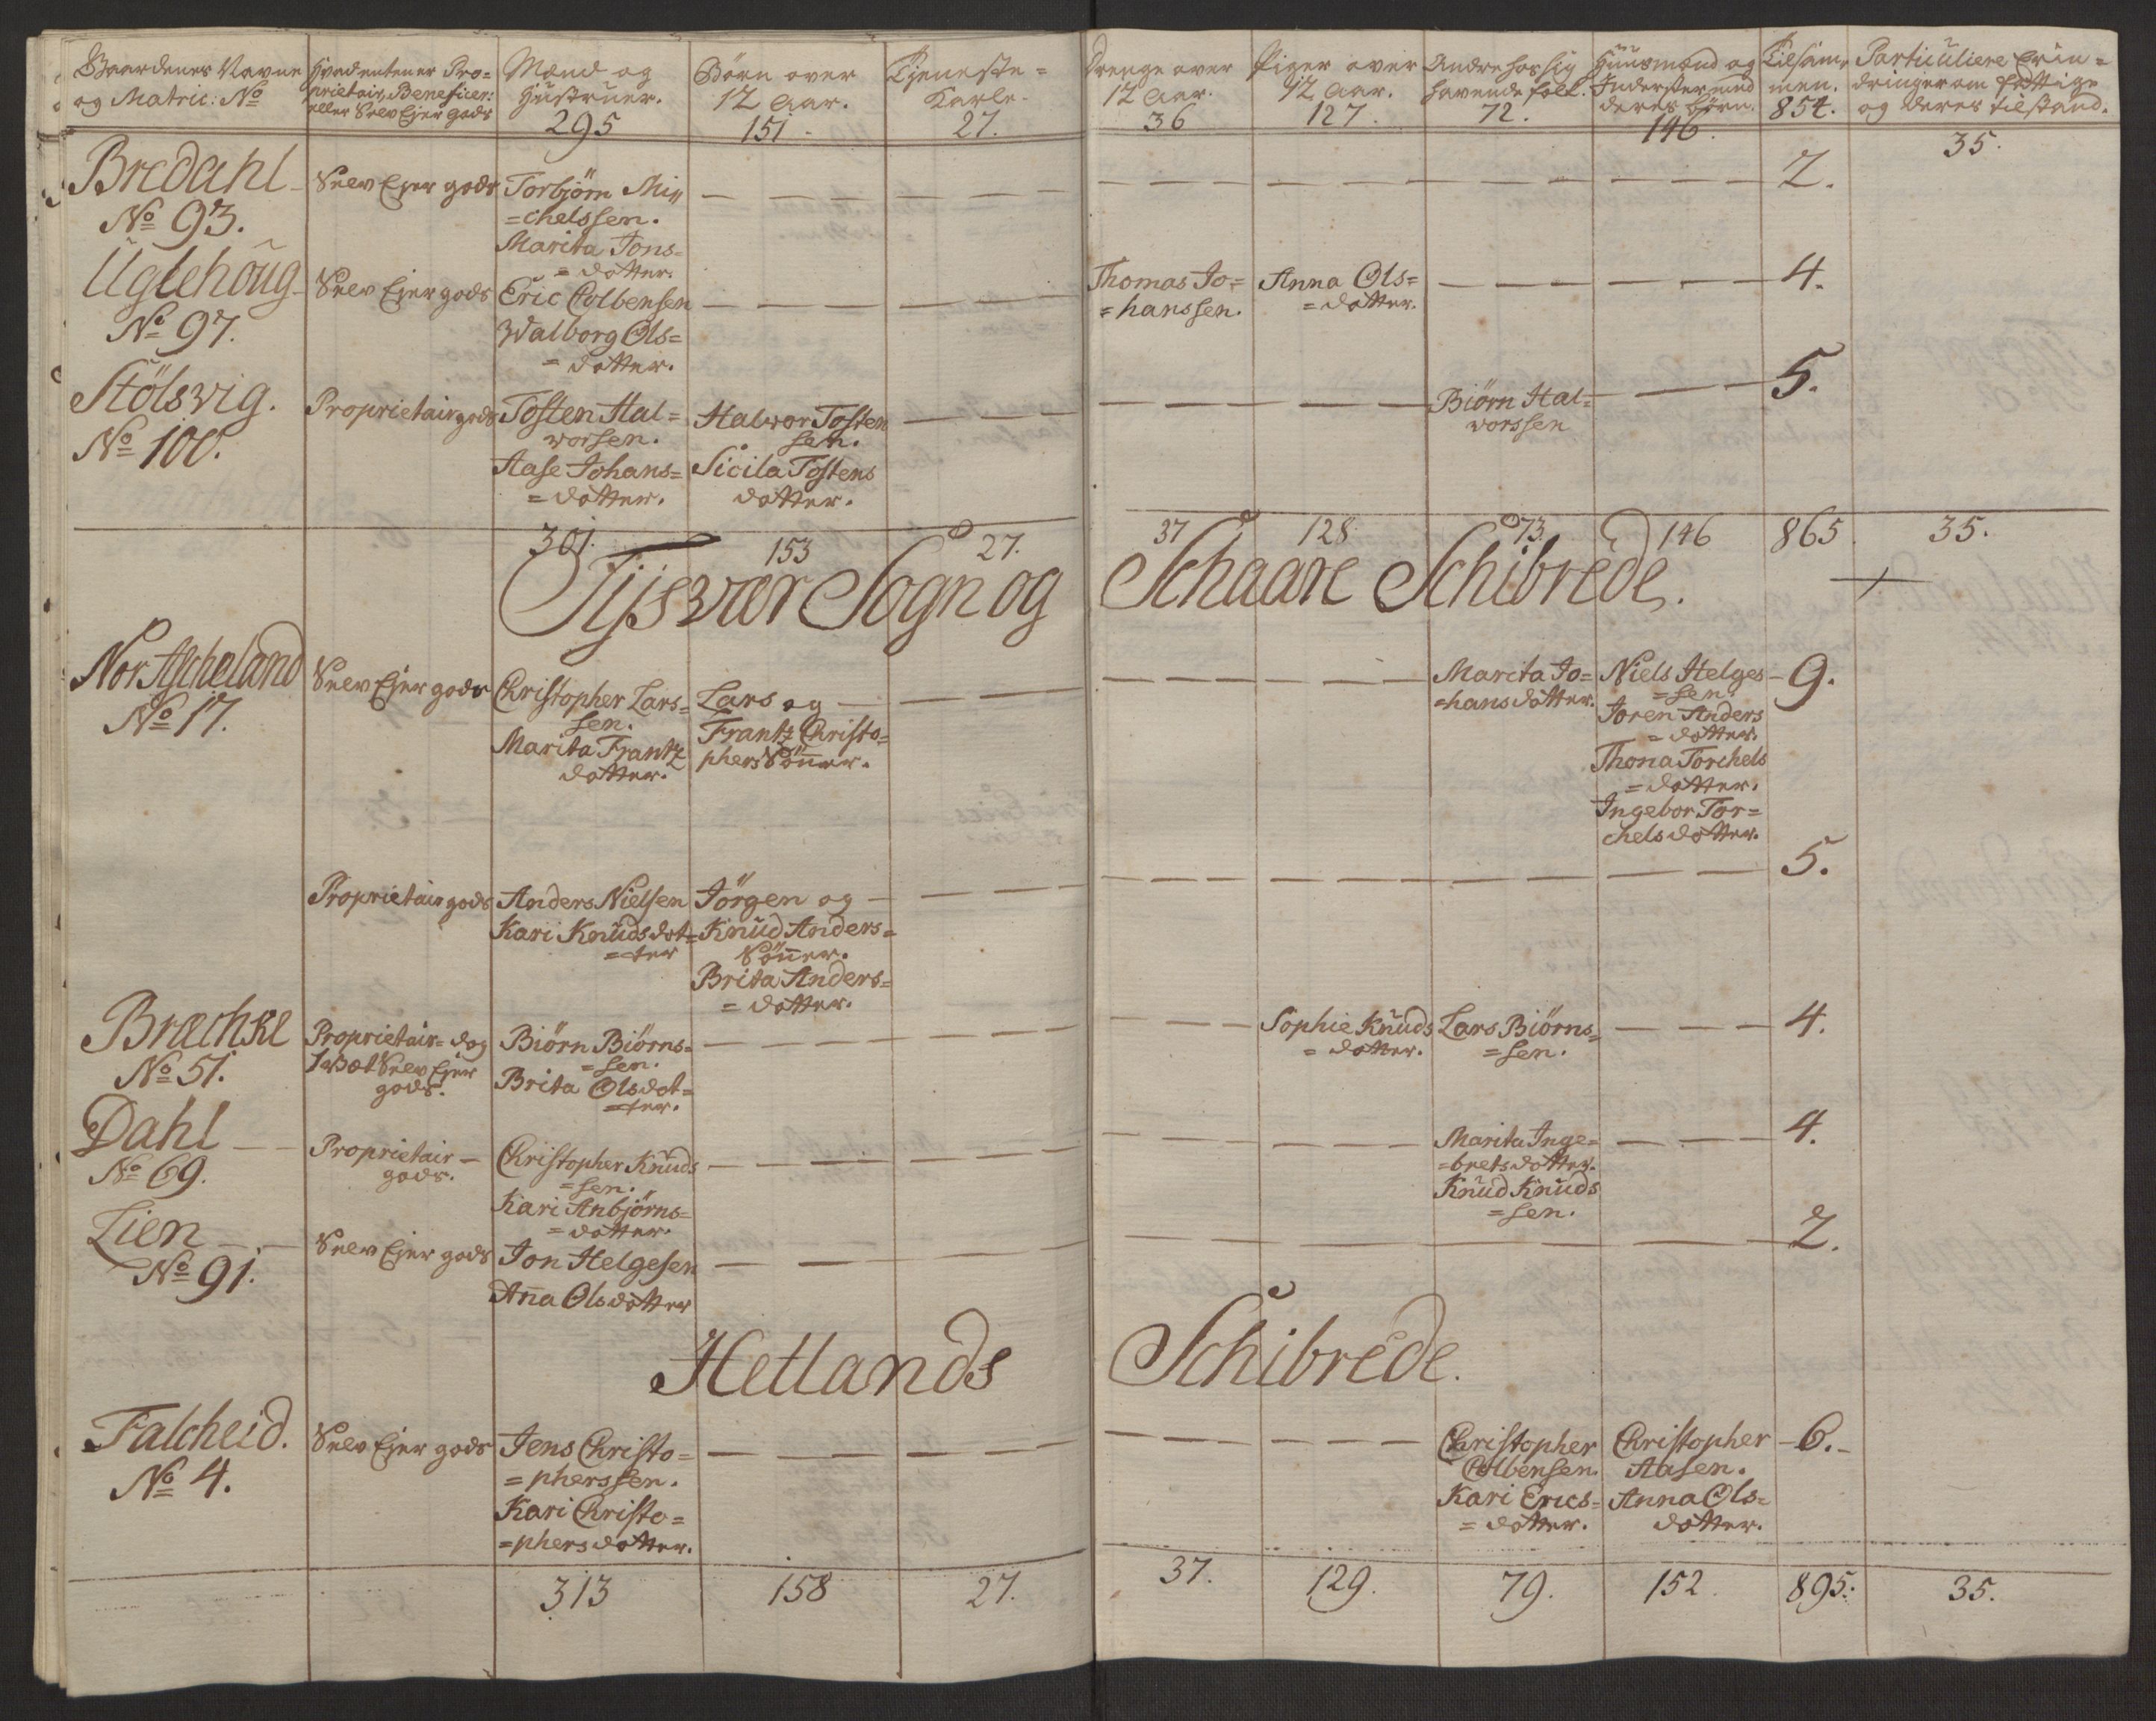 Gaardenes Navne
og Matric: No
Hvad enten er Pro=
prietair, Beneficer:
eller Selv Ejer gods
Mænd og
Hustruer.
295
Børn over
12 Aar.
151.
Tjeneste=
Karle.
27.
Drenge over
12 Aar.
36
Piger over
12 Aar.
127.
Andre hos sig
havende folk.
72.
Huusmænd og
Inderster med
deres börn.
146.
Tilsam̄
men.
854.
Particuliere Erin=
dringer om fattige
og deres tilstand.
35.
Bredahl
No 93.
Selv Ejer gods
Torbjörn Mi=
=chelssen.
Marita Jons=
=dotter.
2.
Uglehoug
No 97.
Selv Ejer gods
Eric Colbensen
Walborg Ols=
=dotter.
Thomas Jo=
=hanssen.
Anna Ols=
=dotter.
4.
Stölsvig.
No 100.
Proprietair gods
Tosten Hal=
worsen.
Aase Johans=
=dotter.
Halvor Tosten
sen.
Sicila Tostens
dotter.
Biörn Hal=
worssen
5.
301.
153
27.
37
128
73.
146
865.
35.
Tijsvær Sogn og Schaare Schibrede.
Nor Ascheland
No 17.
Selv Ejer gods
Christopher Lars=
sen.
Marita Frantz
dotter.
Lars og
Frantz Christo=
phers Sön̄er.
Marita Jo=
=hansdotter.
Niels Helges
=sen
Joren Anders
=dotter.
Thona Torchels
=dotter.
Ingebor Tor=
chelsdotter.
9.
Proprietair gods
Anders Nielsen
Kari Knudsdot=
=ter
Jörgen og
Knud Anders=
Sön̄er.
Brita Anders=
=dotter.
5.
Bræchke
No 51.
Proprietair= dog
1 Bøl Selv Ejer
gods.
Biörn Biörns=
=sen.
Brita Olsdot=
=ter.
Sophie Knuds
=dotter.
Lars Biörns=
=sen.
4.
Dahl
No 69.
Proprietair
gods.
Christopher Knuds
=sen.
Kari Anbjörns=
=dotter.
Marita Inge=
=bretsdotter.
Knud Knuds
=sen.
4.
Lien
No 91.
Selv Ejer gods
Jon Helgesen
An̄a Olsdotter
2.
Hetlands Schibrede.
Falcheid.
No 4.
Selv Ejer gods
Jens Christo=
=pherssen.
Kari Christo=
=phersdotter.
Christopher
Colbensen.
Kari Erics=
=dotter.
Christopher
Aasen.
Anna Ols=
dotter.
6.
313
158
27.
37.
129.
79.
152.
895.
35.